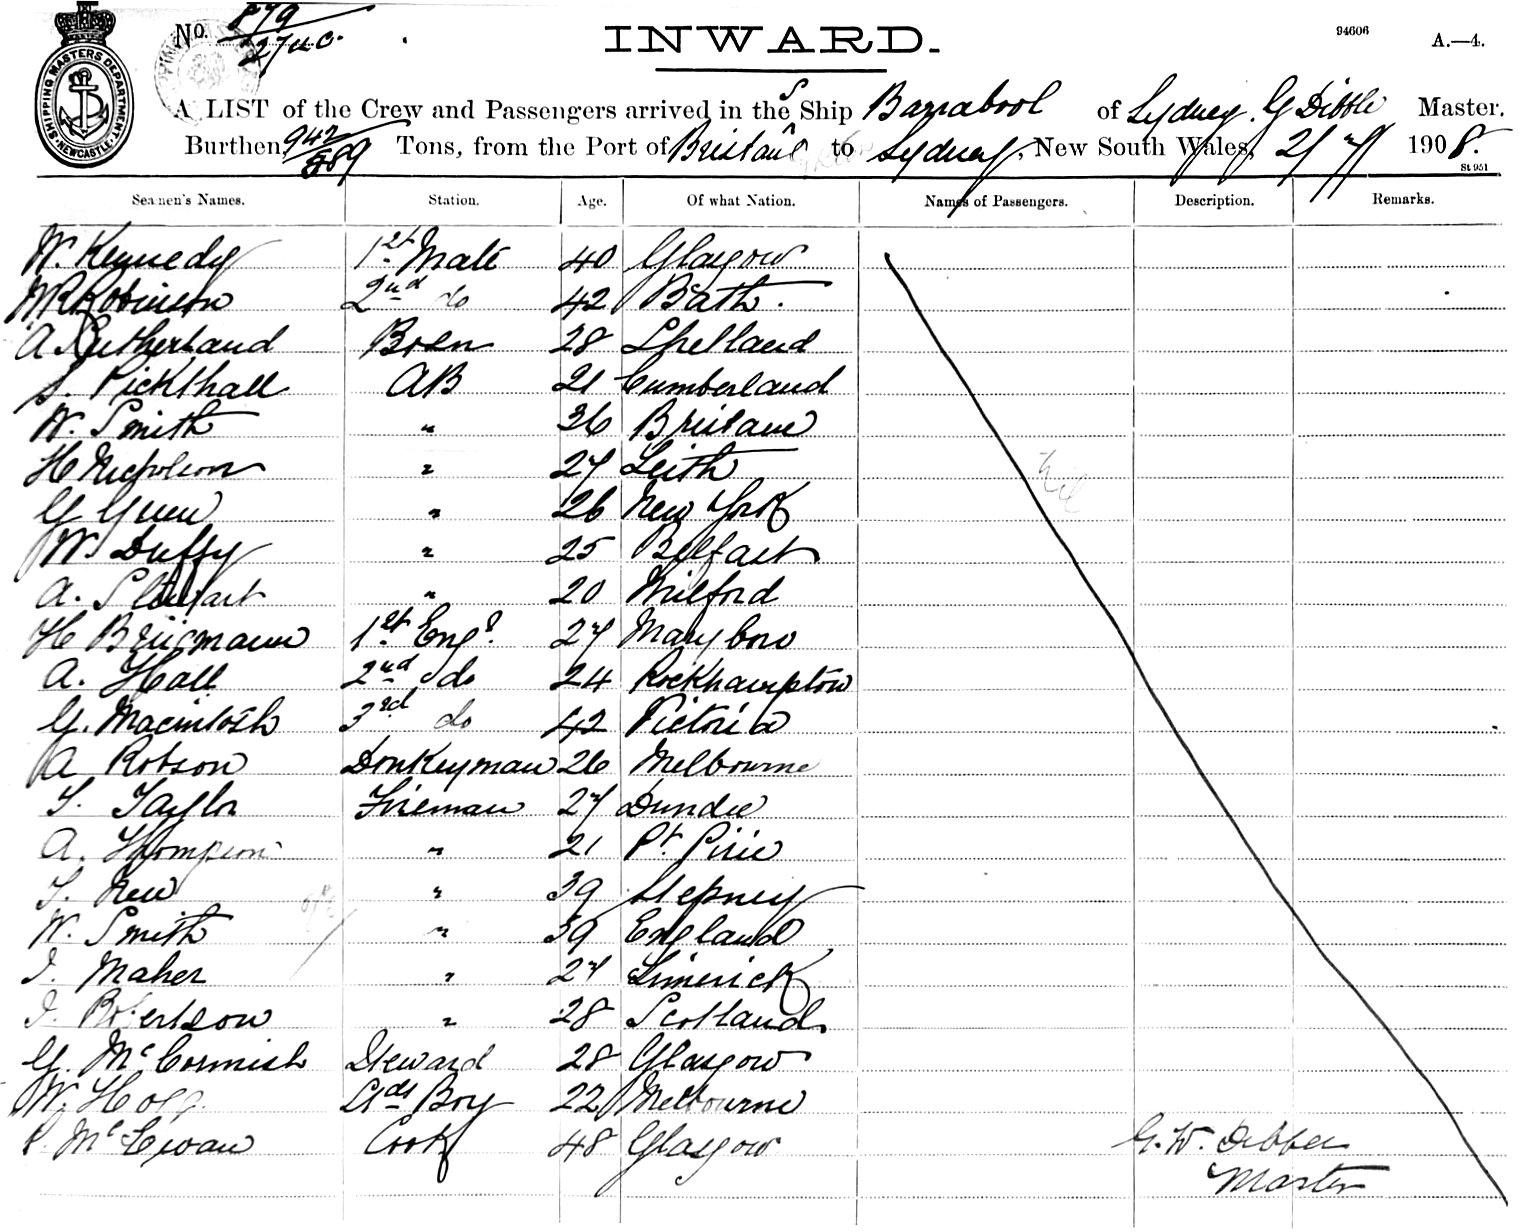 SHIPPING MASTERS DEPARTMENT. NEWCASTLE.
No. 879 94606 A.—4.
INWARD.
A LIST of the Crew and Passengers arrived in the S Ship Barrabool of Sydney. G Dibble Master.
Burthen 942/589 Tons, from the Port of Brisbane to Sydney, New South Wales, 1908.
St 951
Seamen's Names. Station. Age. Of what Nation. Names of Passengers. Description. Remarks.
W. Kennedy 1st Mate 40 Glasgow
W R Robinson 2nd do 42 Bath.
A Sutherland Bosn 28 Shetland
S. Pickthall AB 21 Cumberland
W. Smith " 36 Brisbane
H Nicholson " 27 Leith
nil
G Green " 26 New York
W. Duffy " 25 Belfast
A. Stewart " 20 Milford
H Brüemann 1st Engr. 27 Maryboro
A. Hall 2nd do 24 Rockhampton
G. Macintosh 3rd do 42 Victoria
A Robson Donkeyman 26 Melbourne
T. Taylor Fireman 27 Dundee
A. Thompson " 21 Pt. Pirie
T. New " 39 Stepney
W. Smith " 39 England
J. Maher " 27 Limerick
J. Robertson " 28 Scotland
G. McCormish Steward 28 Glasgow
W. Hogg Stds Boy 22 Melbourne
P. McEwan Cook 48 Glasgow
G. W. Dibble
Master